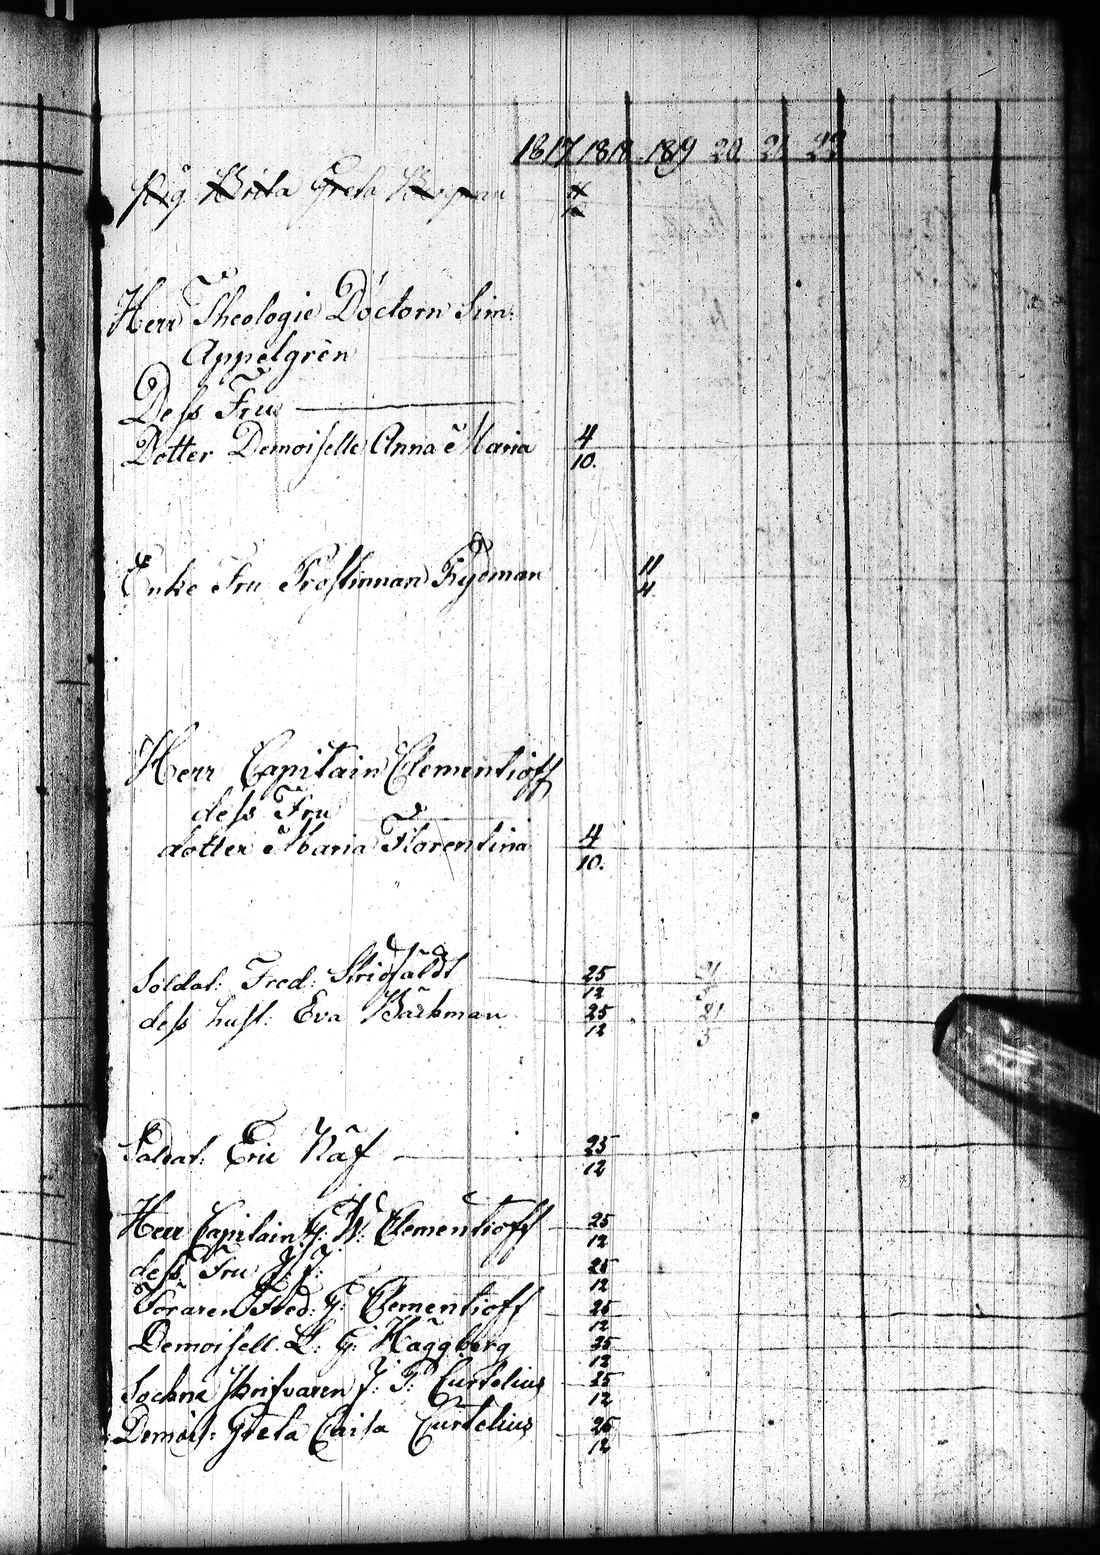 1817 1818 1819 20 21 22
Pig. Brita Greta
Herr Theologie Doctorn Sim:
Appelgrén
Dess Fru
Dotter Demoiselle Anna Maria 4/10.
Enke Fru Prostinnan Rydman 11/4.
Herr Capitain Clementioff
dess Fru
dotter Maria Florentina 4/10.
Soldat: Fred: 25/12 21/3
dess hust: Eva Bäckman 25/12 21/3
Soldat: Eric Näf 25/12
Herr Capitain G: W: Clementioff 25/12
dess Fru J: J: 25/12
Föraren Fred: G: Clementioff 25/12
Demoisell. L: G: Häggberg 25/12
Sockne Skrifvaren J: P: Curtelius 25/12
Demois: Greta Caisa Curtelius 25/12